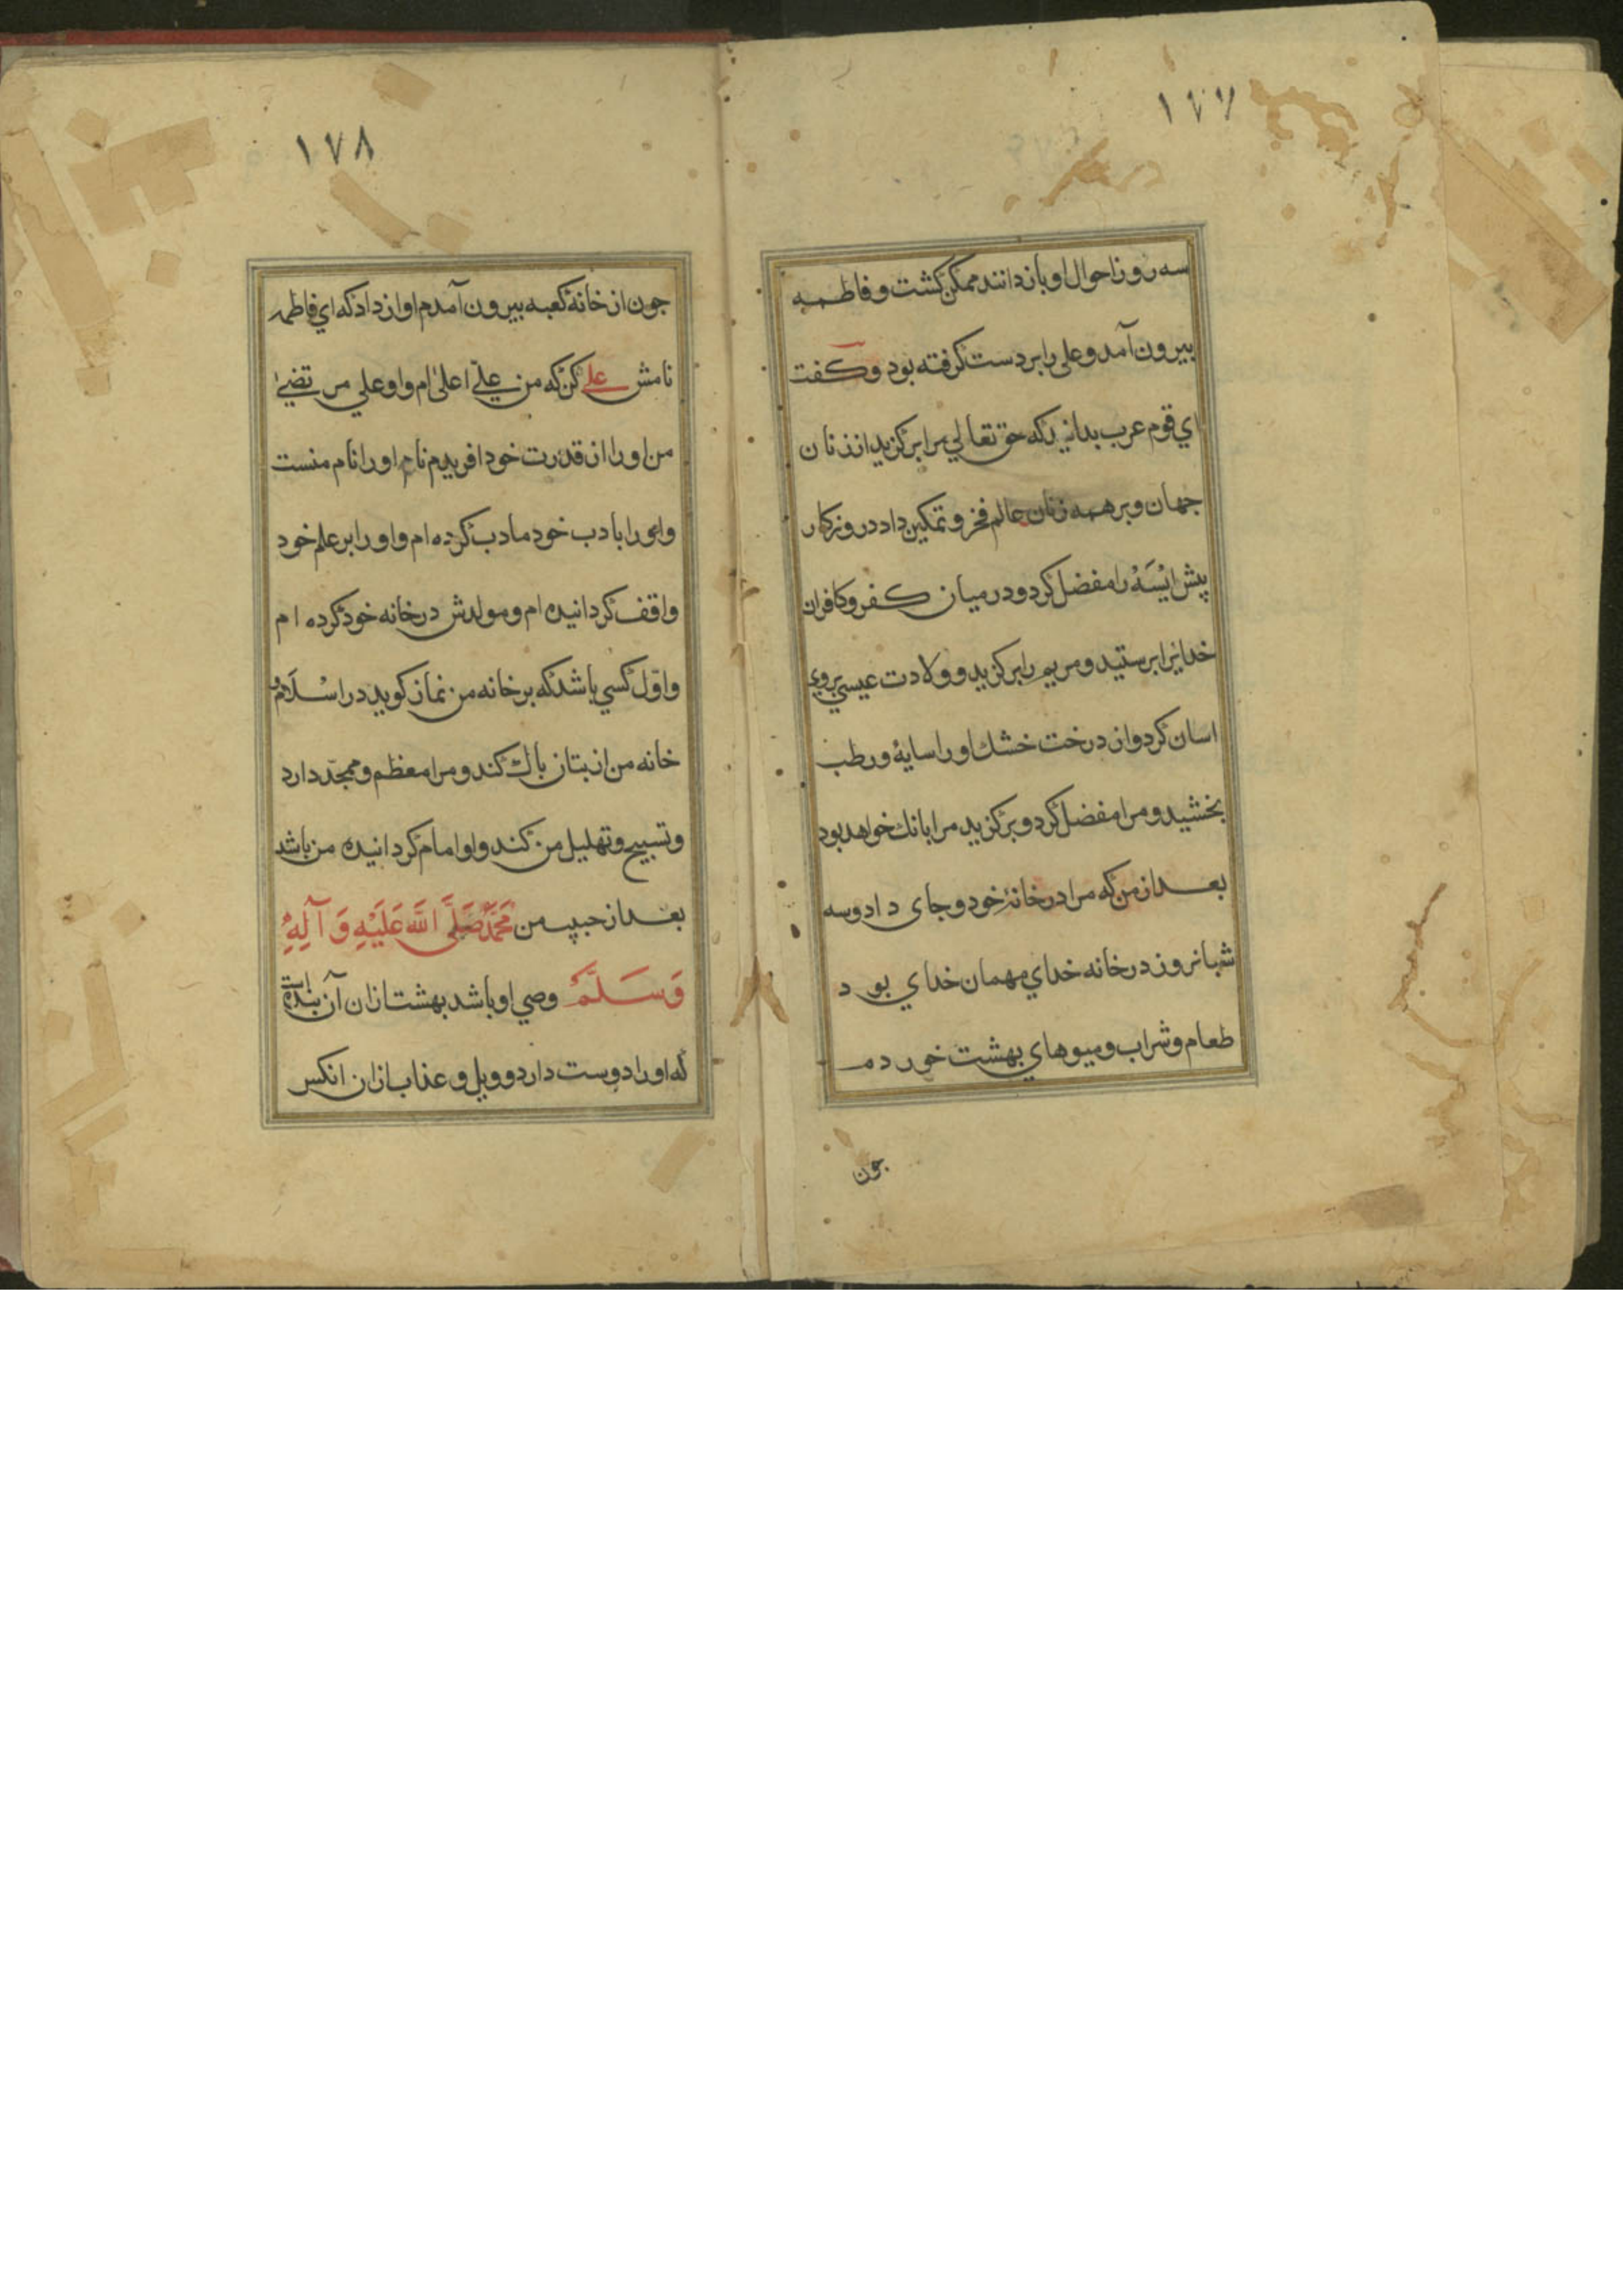 ١٧٧
سه روز احوال او باز دانند ممکن نکشت و فاطمه
بیرون آمد و علی را بر دست کرفته بود و کفت
ای قوم عرب بدانید که حق تعالی مرا برکزید از زنان
جهان و بر همه زنان عالم فخر و تمکین داد در روزکار
پیش ایْسَهْ را مفضل کرد و در میان کفر و کافران
خدایرا برستید و مریم را برکزید و ولادت عیسی بروی
اسان کرد و از درخت خشك او را سایهٔ و رطب
بخشید و مرا مفضل کرد و برکزید مرا بانك خواهد بود
بعد از من که مرا در خانهٔ خود و جای داد و سه
شبانروز در خانه خدای مهمان خدای بود
طعام و شراب و میوهای بهشت خوردم
جون
١٧٨
جون از خانهٔ کعبه بیرون آمدم اواز داد که ای فاطمه
نامش علی کن که من علیّ اعلیٰ ام و او علی مرتضیٰ
من او را از قدرت خود افریدم نام او را نام منست
واو را بادب خود مادب کرده ام و او را بر علم خود
واقف کردانیده ام و مولدش در خانه خود کرده ام
و اوّل کسی باشد که بر خانه من نماز کوید در اسْلَام
خانه من از بتان باك کند و مرا معظم و ممجّد دارد
و تسبیح و تهلیل من کند و او امام کردانیده من باشد
بعد از حبیب من مُحَمَّد صَلَّی اللَّه عَلَیْهِ وَ آلِهِ
وَسَلَّمَ وصی او باشد بهشت ازان آن بنده است
که او را دوست دارد و ویل و عذاب ازان انکس